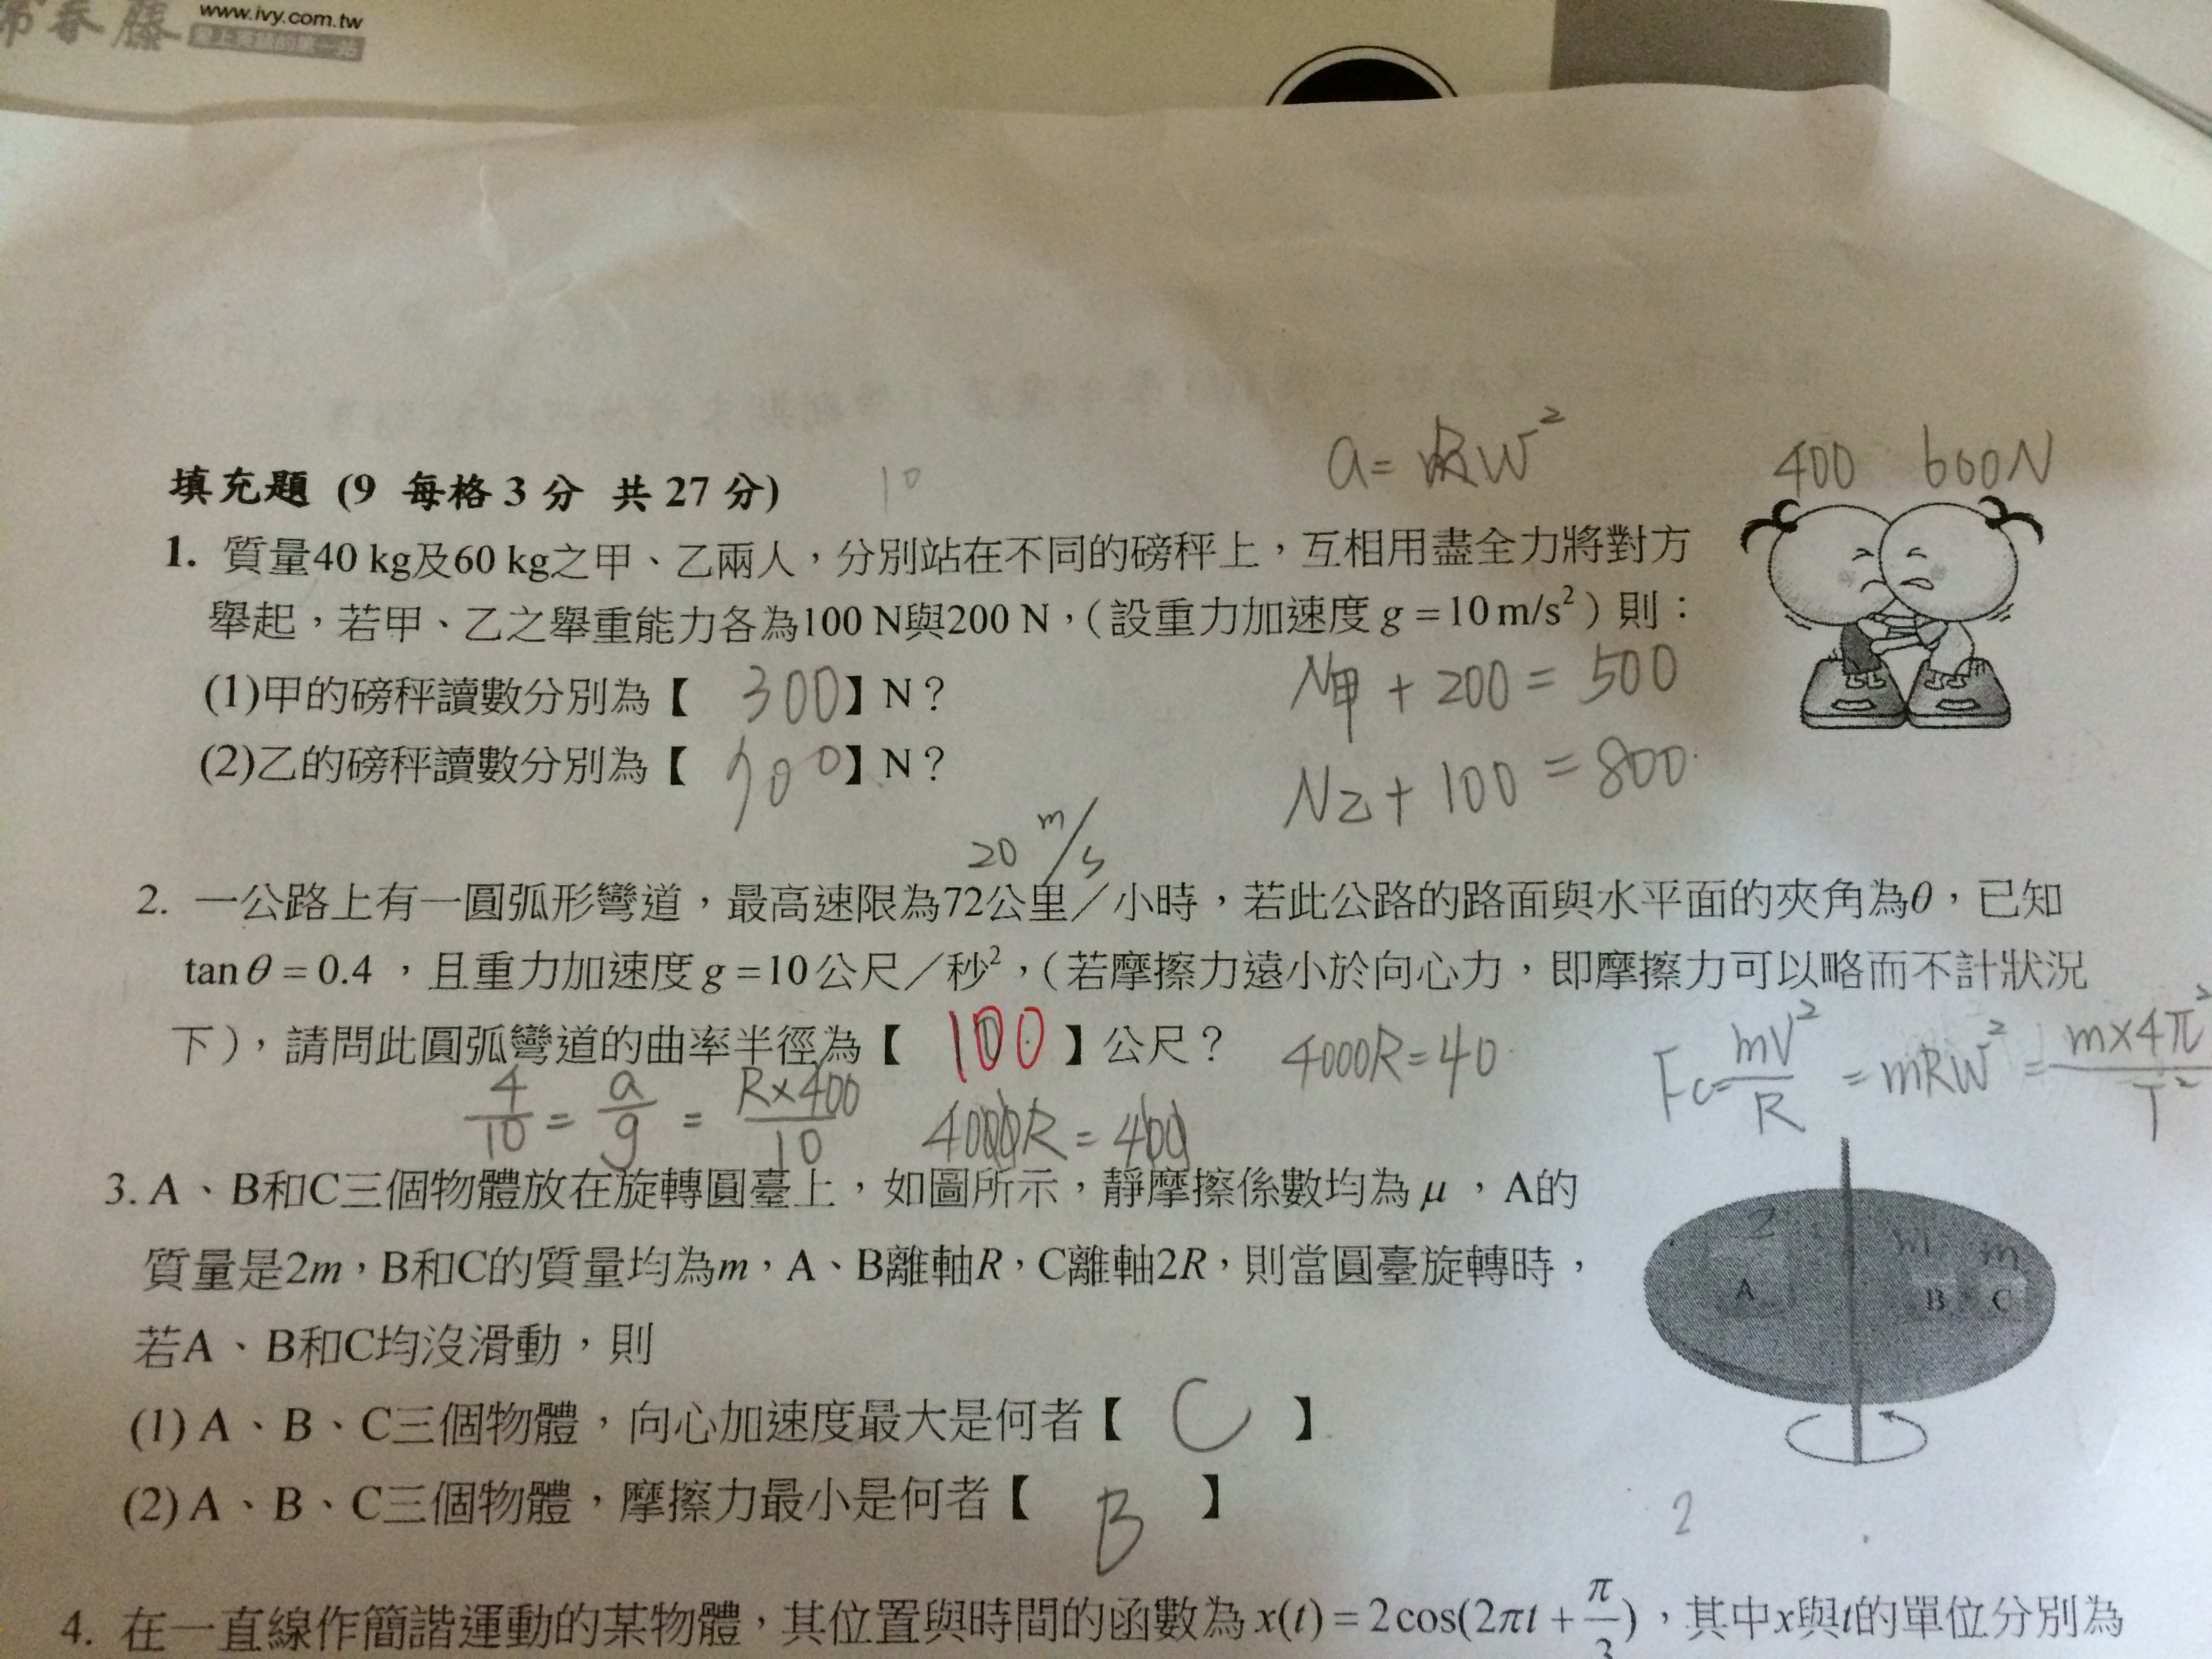 常春藤 www.ivy.com.tw
愛上英語的第一站
a = Rw²
400 600N
填充題 (9 每格 3 分 共 27 分) 10
1. 質量40 kg及60 kg之甲、乙兩人,分別站在不同的磅秤上,互相用盡全力將對方
舉起,若甲、乙之舉重能力各為100 N與200 N,(設重力加速度 g = 10 m/s²) 則:
(1)甲的磅秤讀數分別為【 300 】N?
N甲 + 200 = 500
(2)乙的磅秤讀數分別為【 700 】N?
N乙 + 100 = 800
20 m/s
2. 一公路上有一圓弧形彎道,最高速限為72公里/小時,若此公路的路面與水平面的夾角為θ,已知
tan θ = 0.4 ,且重力加速度 g = 10 公尺/秒²,(若摩擦力遠小於向心力,即摩擦力可以略而不計狀況
下),請問此圓弧彎道的曲率半徑為【 100 】公尺?
4000R = 40
Fc = mV²/R = mRW² = m×4π²/T²
4/10 = a/g = R×400/10 4000R = 400
3. A、B和C三個物體放在旋轉圓臺上,如圖所示,靜摩擦係數均為 μ ,A的
質量是2m,B和C的質量均為m,A、B離軸R,C離軸2R,則當圓臺旋轉時,
若A、B和C均沒滑動,則
2 m m
A B C
(1) A、B、C三個物體,向心加速度最大是何者【 C 】
(2) A、B、C三個物體,摩擦力最小是何者【 B 】
2
4. 在一直線作簡諧運動的某物體,其位置與時間的函數為 x(t) = 2cos(2πt + π/3) ,其中x與t的單位分別為